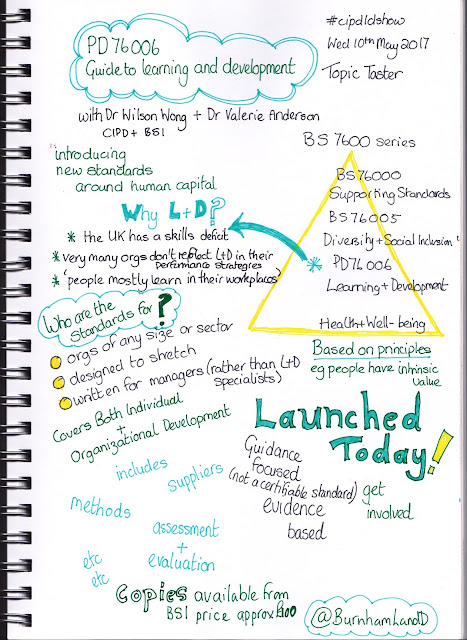 #cipdldshow
Wed 10th May 2017
Topic Taster
PD76006
Guide to learning and development
with Dr Wilson Wong + Dr Valerie Anderson
CIPD + BSI
introducing
new standards
around human capital
Why L+D?
* the UK has a skills deficit
* very many orgs don't reflect L+D in their
performance strategies
* 'people mostly learn in their workplaces'
BS 7600 series
BS76000
Supporting Standards
BS 76005
Diversity + Social Inclusion
* PD76006
Learning + Development
Health + Well-being
Based on principles
eg people have intrinsic
value
Who are the
Standards for?
orgs of any size or sector
designed to stretch
written for managers (rather than L+D
specialists)
Covers Both Individual
+
Organizational Development
includes
suppliers
methods
assessment
+
evaluation
etc
etc
Launched
Today!
Guidance
focused
(not a certifiable standard)
evidence
based
get
involved
Copies available from
BSI price approx £100
@BurnhamLandD